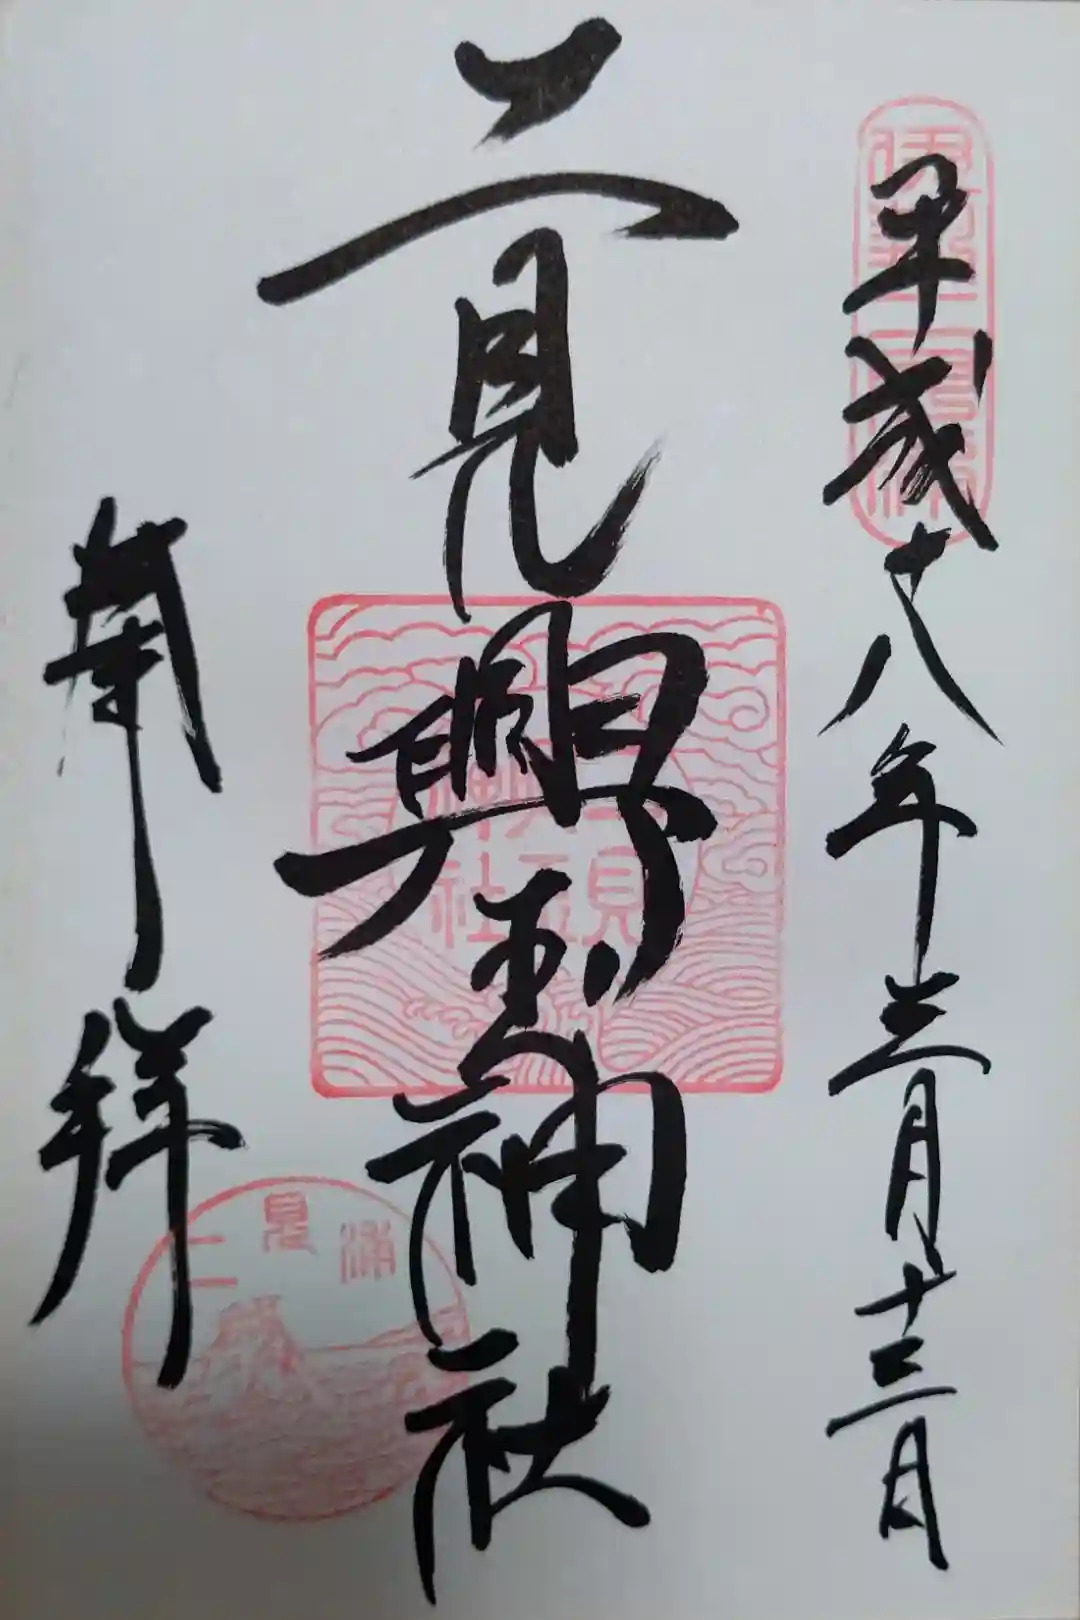 平成十八年三月十三日
伊勢二見浦
二見興玉神社
二見興玉神社
奉拝
二見浦